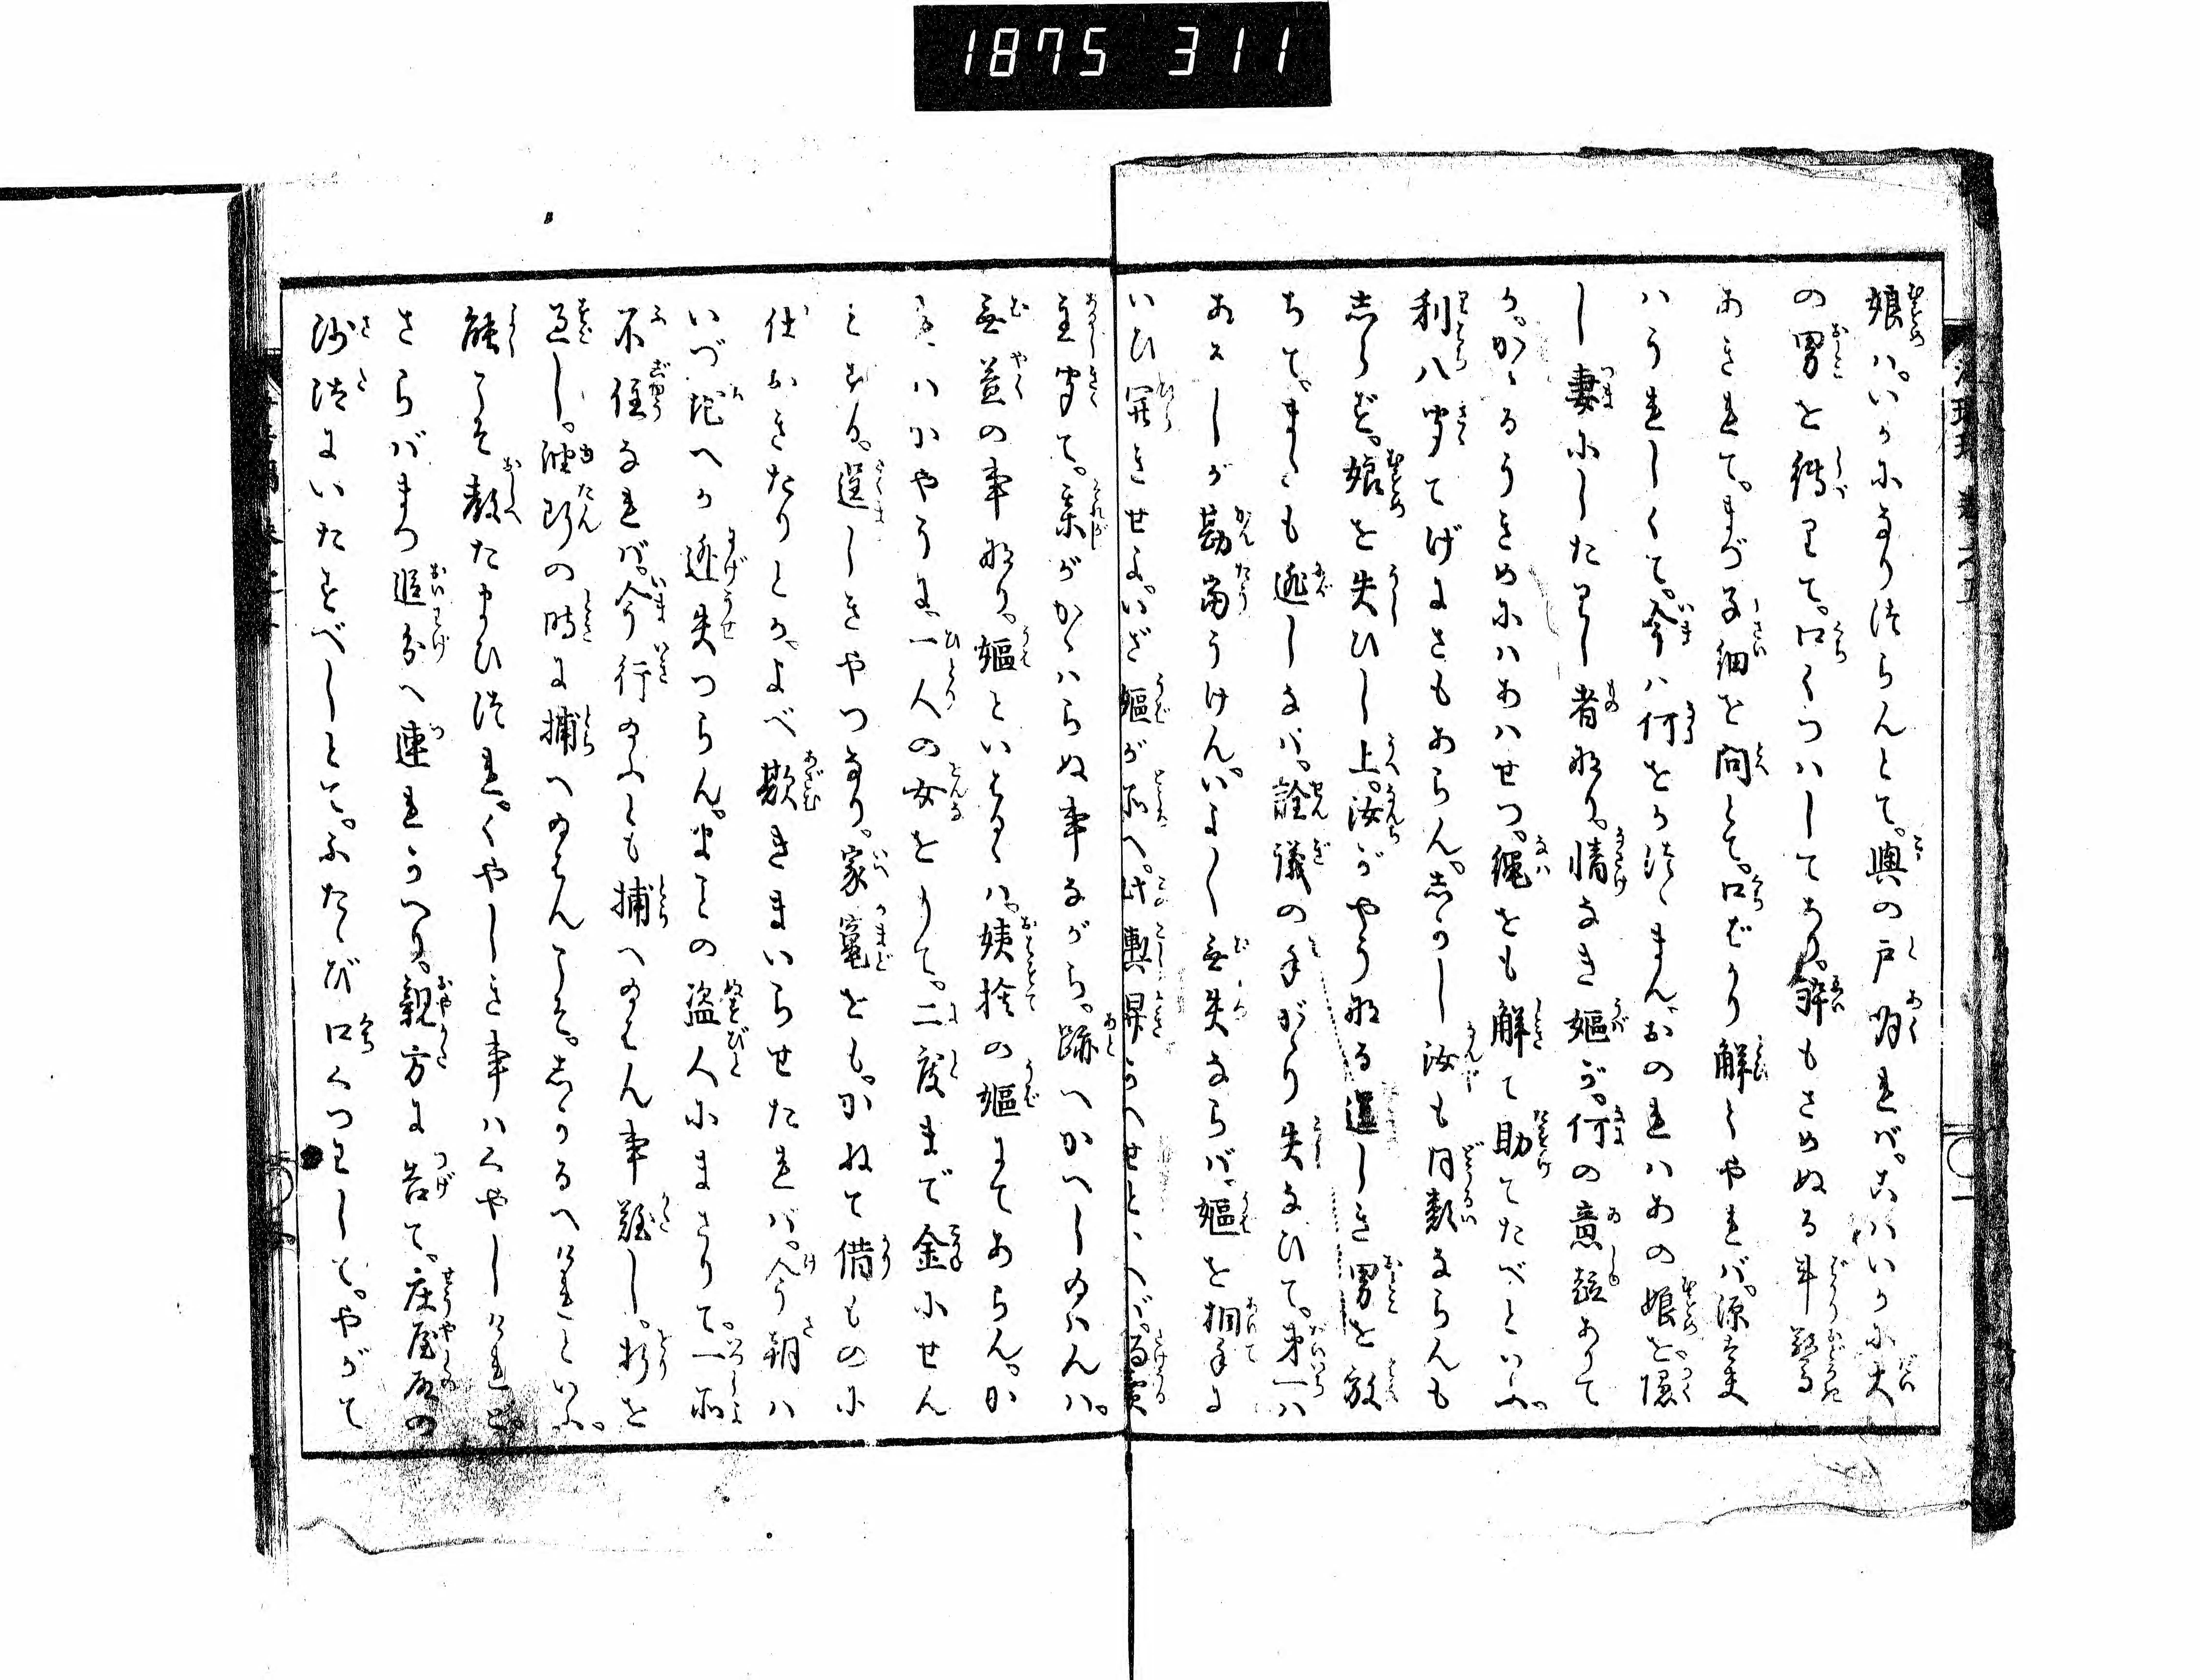 1875 311
娘ハ。いかになり給らんとて。輿の戸明れバ。こハいかに大
の男を縛りて。口くつハしてあり。酔もさめぬる斗驚
あきれて。まづ子細を問とて。口ばかり解しやれバ。源太夫
ハうれしくて。今ハ何をかつゝまん。おのれハあの娘を隠
し妻にしたりし者なり。情なき嫗が。何の意趣ありて
か。かゝるうきめにハあハせつ。縄をも解て助てたべといふ。
利八聞てげにさもあらん。しかし汝も同類ならんも
しらず。娘を失ひし上。汝がやうなる逞しき男を放
ちて。またも逃しなバ。詮議の手がゝり失なひて。第一ハ
あるじが勘当うけん。いよ〳〵無失ならバ。嫗を相手に
いひ開きせよ。いざ嫗が所へ。此輿舁かへせといへバ。
主聞て。某がかゝハらぬ事ながら。跡へかへし給ハんハ。
無益の事なり。嫗といえるハ。姨捨の嫗にてあらん。か
ハかやうに。一人の女をうりて。二度まで金にせん
とする。逞しきやつなり。家竈をも。かねて借ものに
仕おきたりとか。よべ欺きまいらせたれバ。今朝ハ
いづ地へか迯失つらん。まことの盗人にまさりて。一所
不住なれバ。今行給ふとも捕へ給ハん事難し。折を
過し。油断の時に捕へ給ハんこそ。しかるべけれといふ。
能こそ教たまひ給れ。くやしき事ハくやしけれど。
さらバまづ追分へ連れかへり。親方に告て。庄屋殿の
沙汰にいたすべしとて。ふたゝび口くつわして。やがて